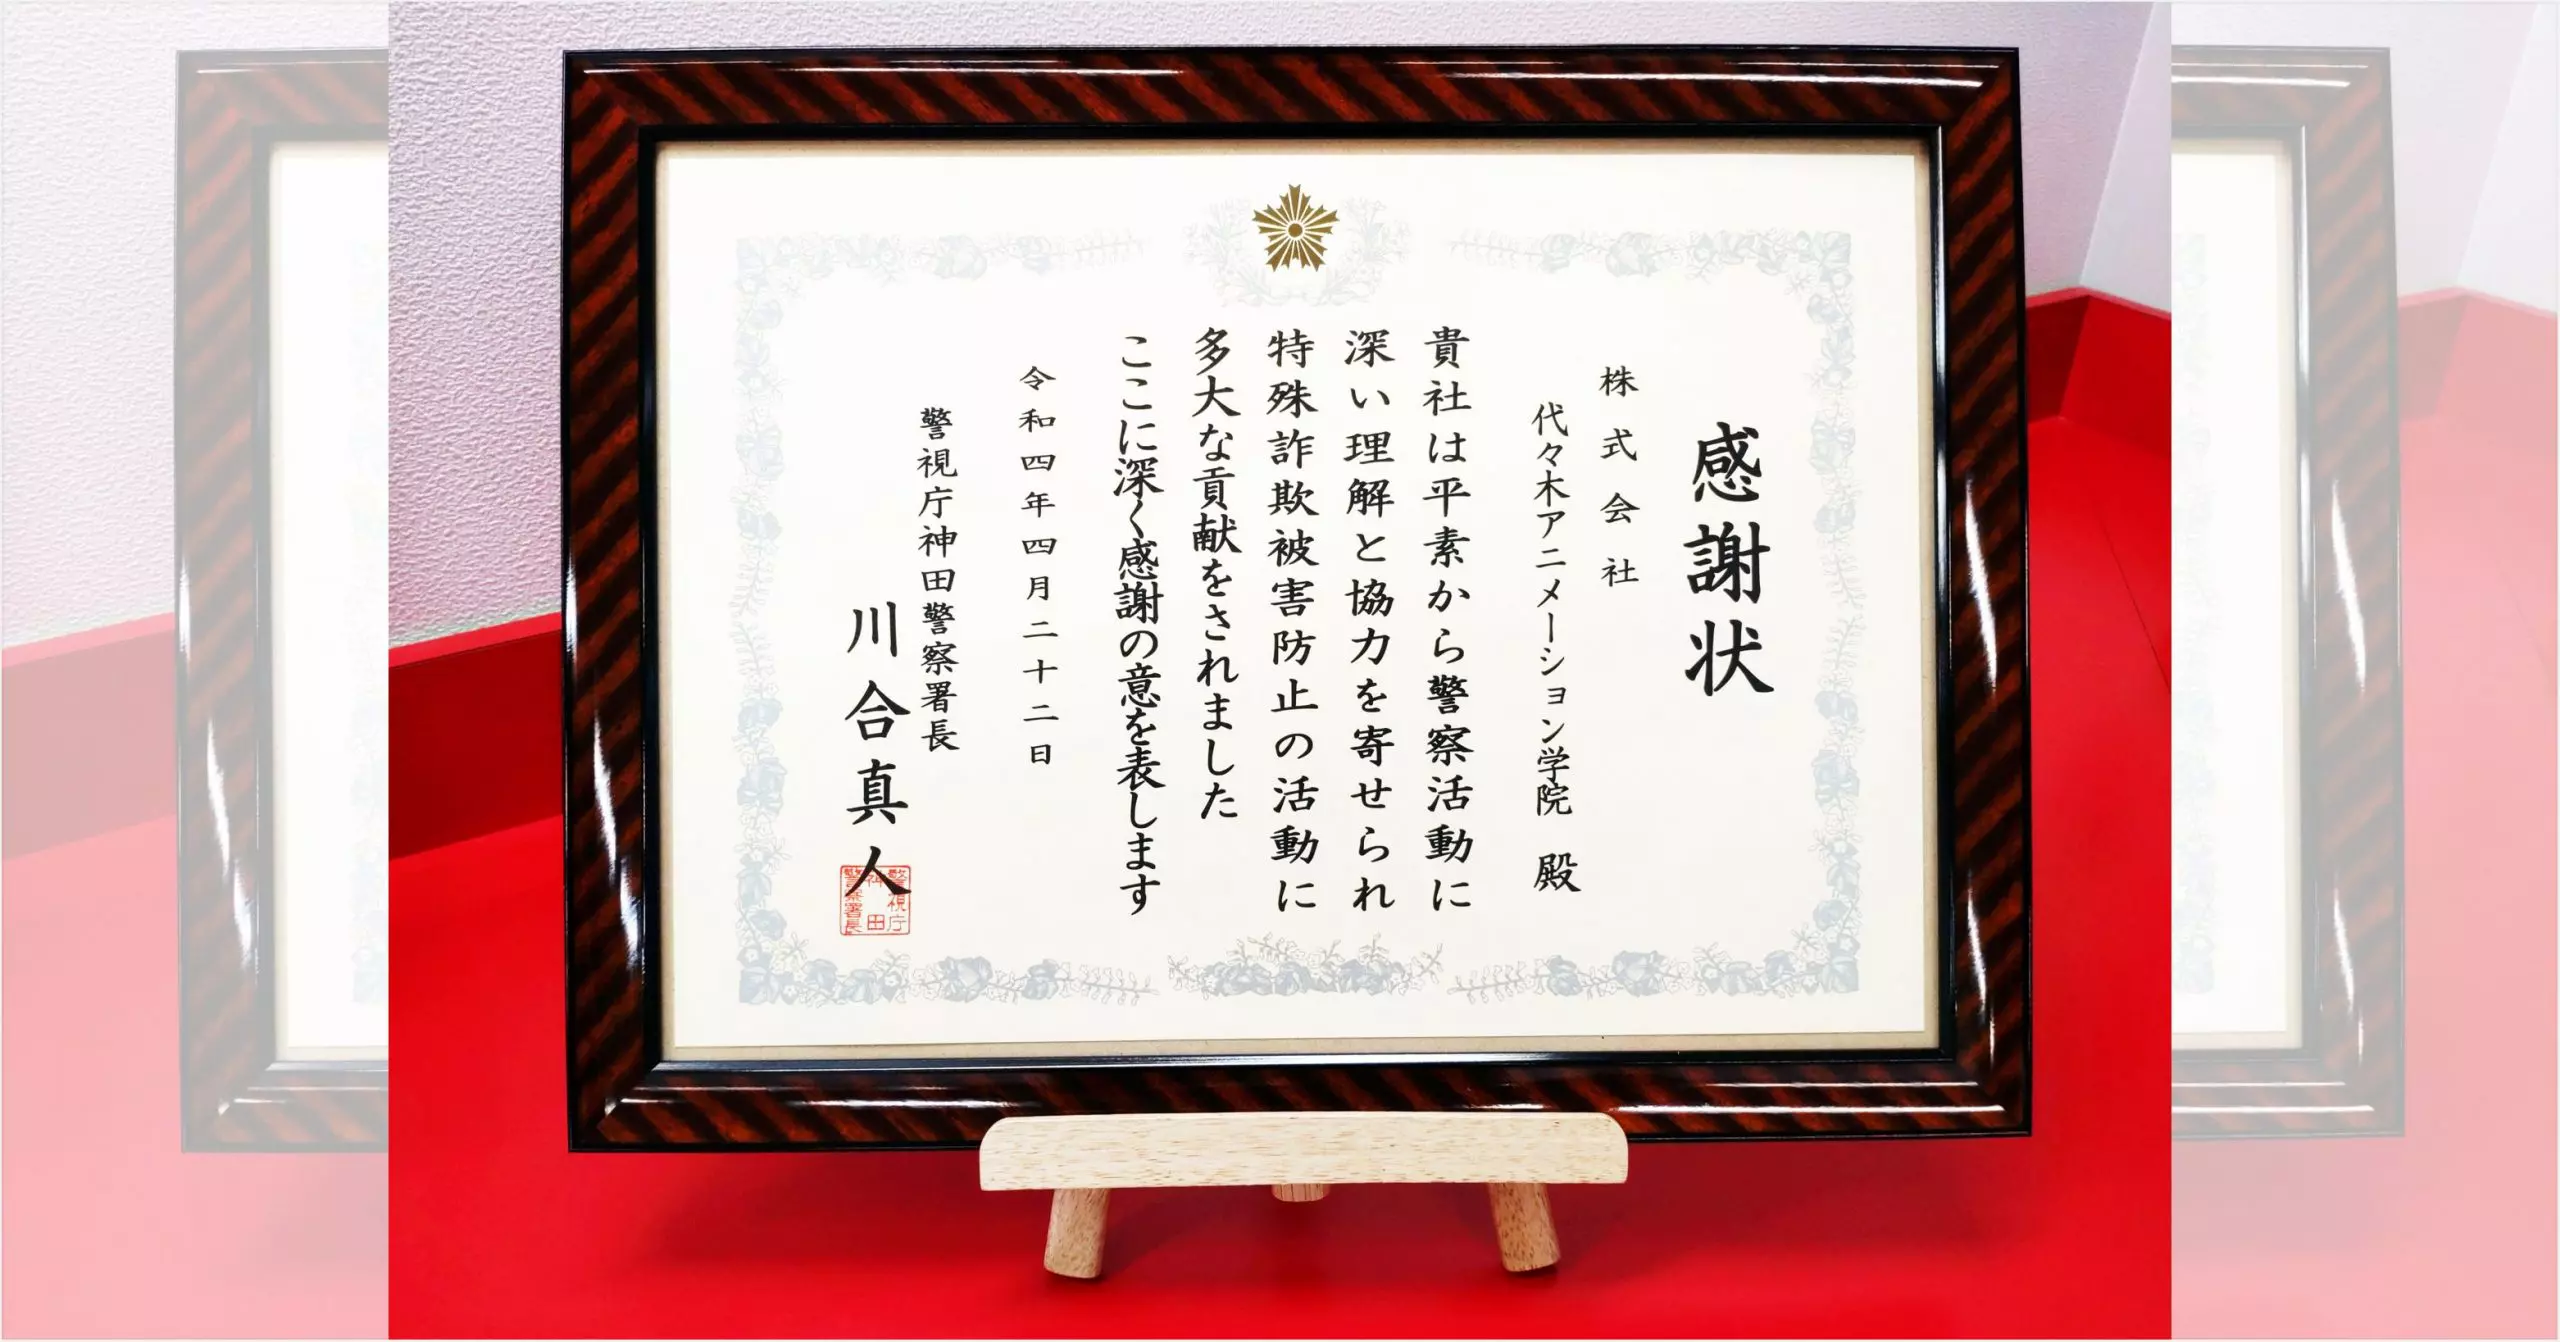 感謝状
株式会社
代々木アニメーション学院 殿
貴社は平素から警察活動に
深い理解と協力を寄せられ
特殊詐欺被害防止の活動に
多大な貢献をされました
ここに深く感謝の意を表します
令和四年四月二十二日
警視庁神田警察署長
川合真人
警視庁
神田
警察署長